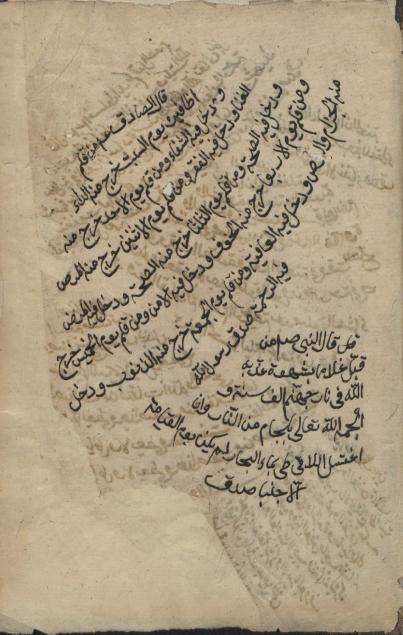 قال الصادق عم من قلم
اظافيره يوم السبت خرج منه الداء
ودخل فيه الشفاء ومن قلم يوم الاحد خرج منه
الغناء ودخل فيه الفقر ومن قلم يوم الاثنين خرج منه المرض
ودخل فيه الصحة ومن قلم يوم الثلثا خرج منه الصحة ودخل فيه المرض
ومن قلم يوم الاربعا خرج منه الخوف ودخل فيه الامن ومن قلم يوم الخميس خرج
منه الجذام والبرص ودخل فيه العافية ومن قلم يوم الجمعة خرج منه الذنوب ودخل
فيه الرحمة صدق رسول الله
قال النبي صلم من
قبل غلاما بشهوة عذبه
الله في نار جهنم الف سنة و
الجمه الله تعالى بلجام من النار وان
اغتسل بماء البحار لم يكن يوم القيامة
الا جنبا صدق